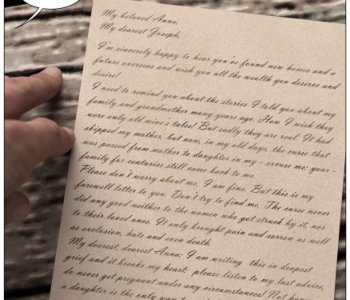 My beloved Anna,
My dearest Joseph,
I'm sincerely happy to hear you've found new homes and a
future overseas and wish you all the wealth you deserve and
desire!
I need to remind you about the stories I told you about my
family and grandmother many years ago. How I wish they
were only old wives's tales! But sadly they are real. It had
skipped my mother, but now, in my old days, the curse that
was passed from mother to daughter in my - excuse me: your -
family for centuries still came back to me.
Please don't worry about me, I am fine. But this is my
farewell letter to you. Don't try to find me. The curse never
did any good neither to the women who got struck by it, nor
to their loved ones. It only brought pain and sorrow as well
as exclusion, hate and even death.
My dearest, dearest Anna: I am writing this in deepest
grief and it breaks my heart: please listen to my last advice,
do never get pregnant under any circumstances! Not having
a daughter is the only way t